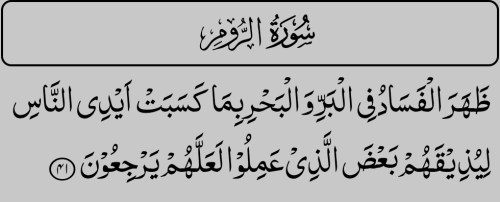 سُوْرَةُ الرُّوْمِ
ظَهَرَ الْفَسَادُ فِی الْبَرِّ وَ الْبَحْرِ بِمَا كَسَبَتْ اَیْدِی النَّاسِ
لِیُذِیْقَهُمْ بَعْضَ الَّذِیْ عَمِلُوْا لَعَلَّهُمْ یَرْجِعُوْنَ ۴۱